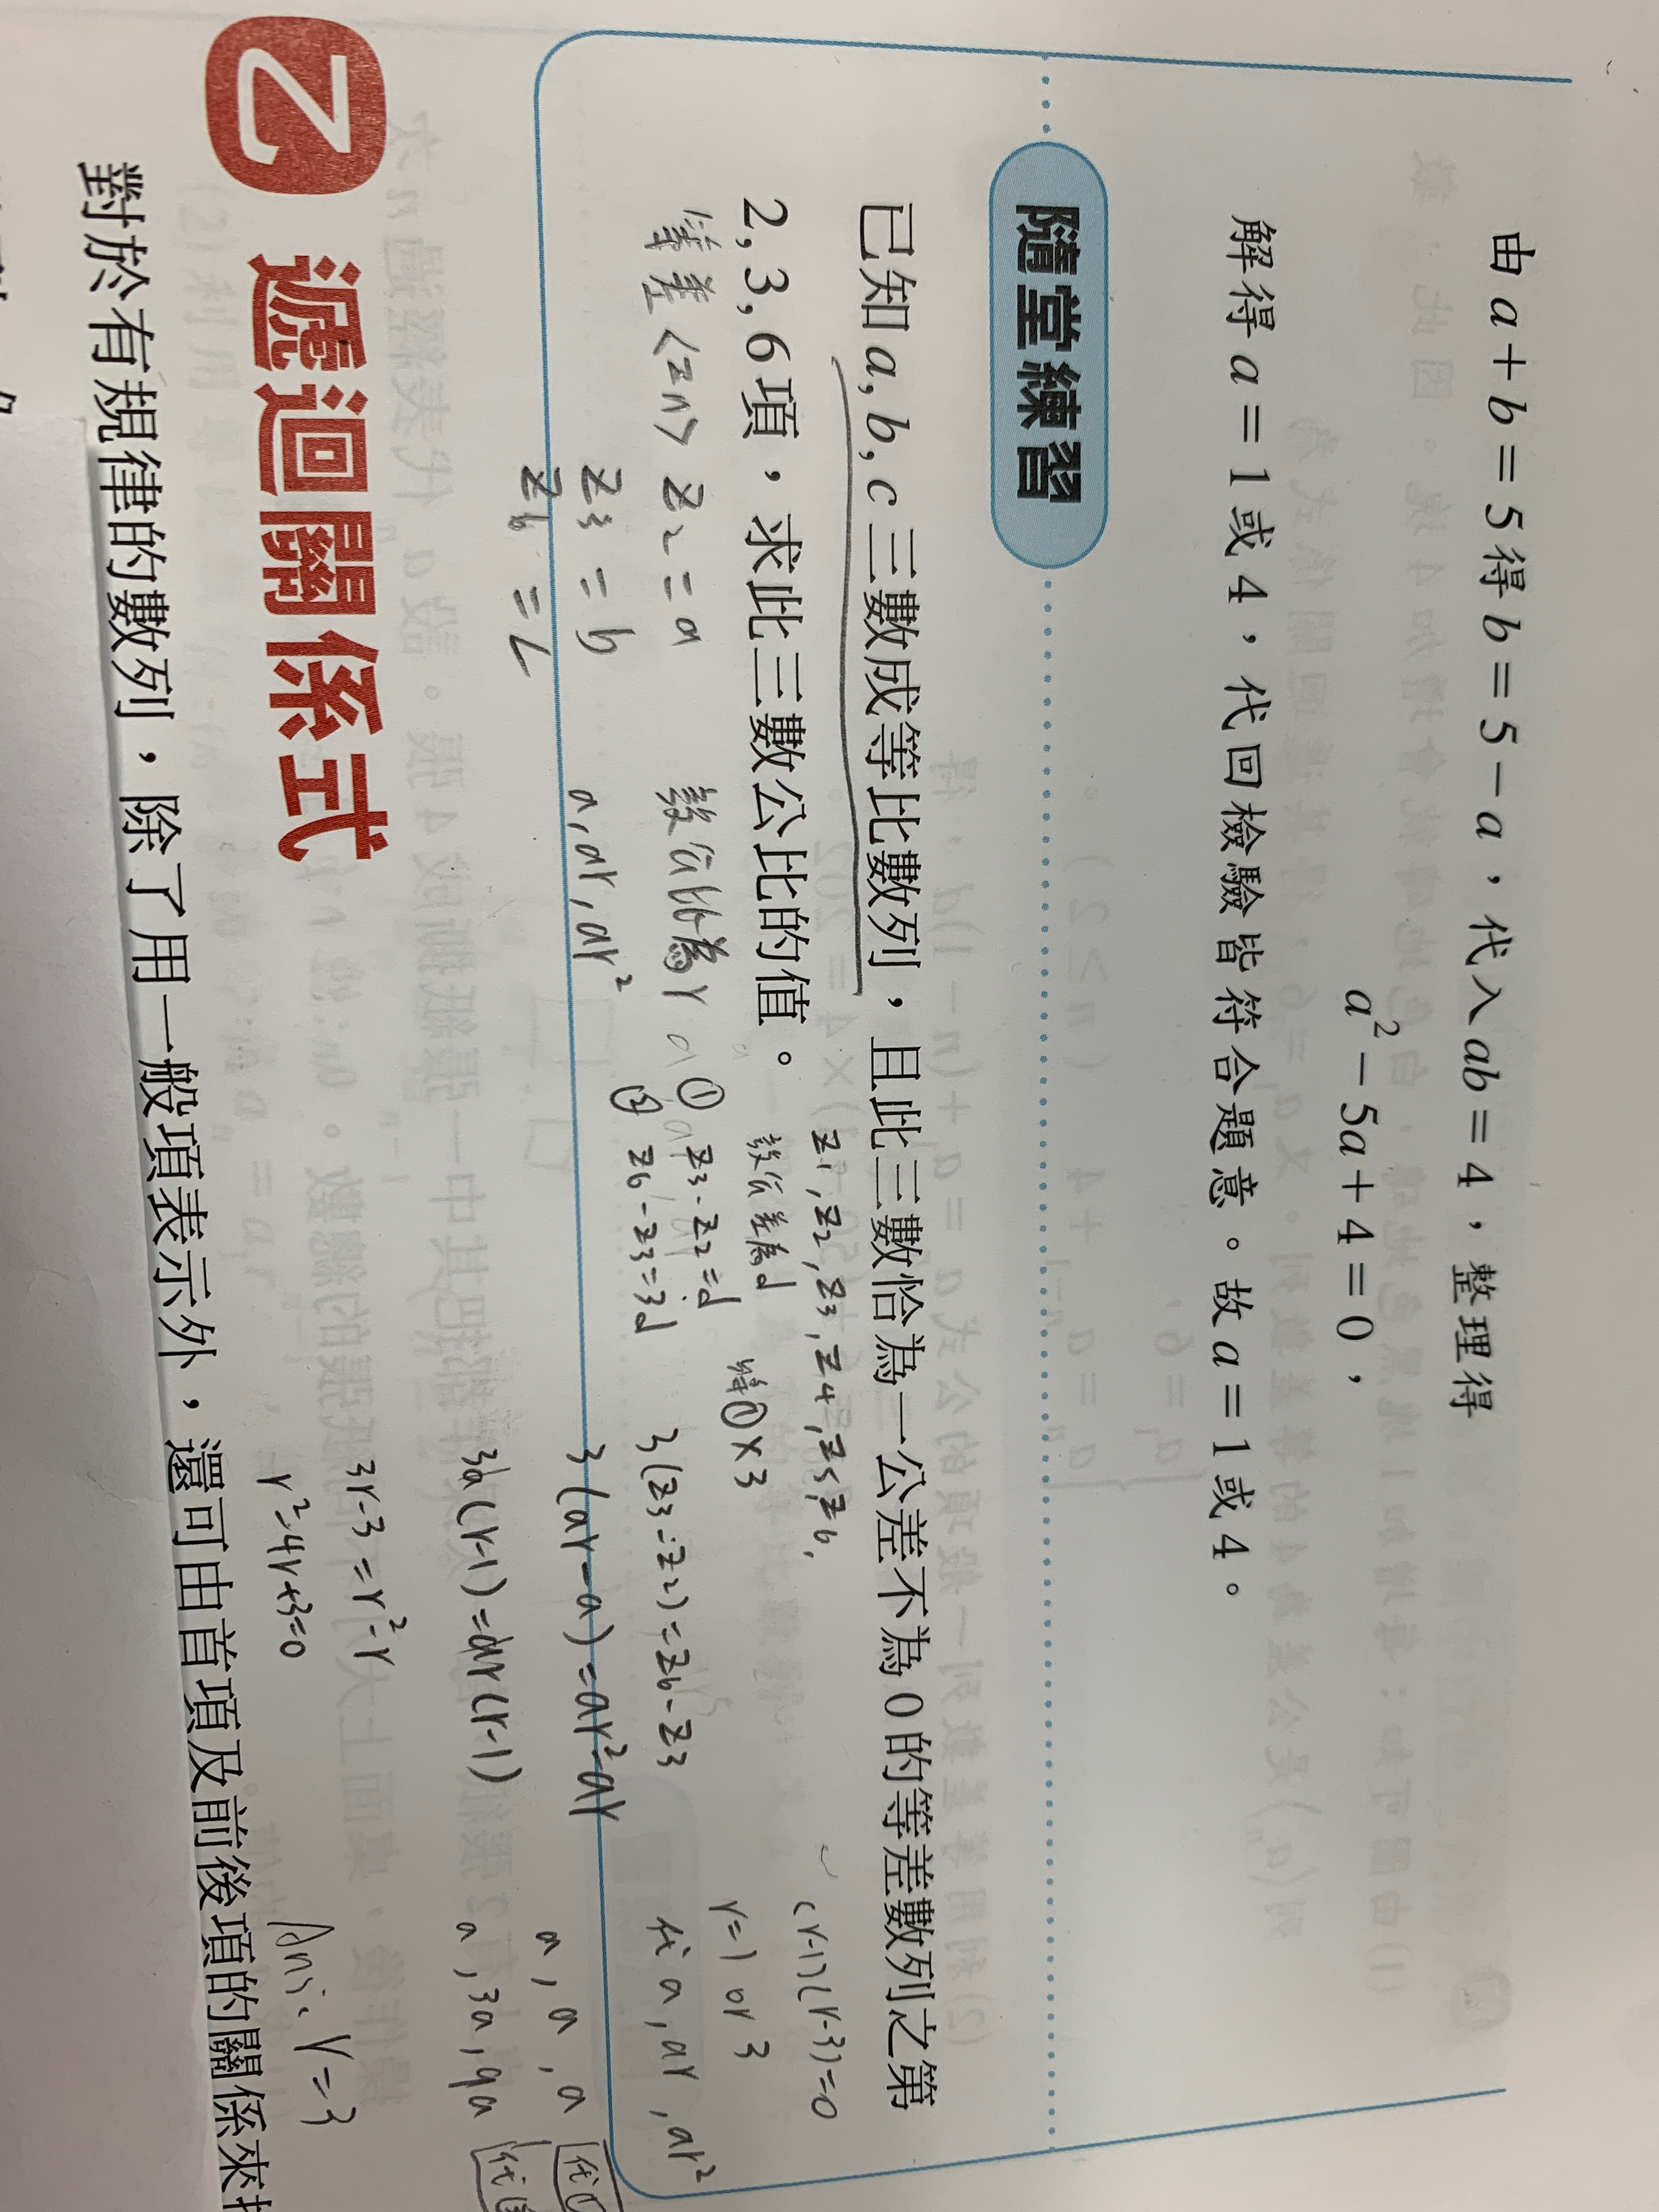 由 a + b = 5 得 b = 5 - a，代入 ab = 4，整理得
a² - 5a + 4 = 0，
解得 a = 1 或 4，代回檢驗皆符合題意。故 a = 1 或 4。
隨堂練習
已知 a, b, c 三數成等比數列，且此三數恰為一公差不為 0 的等差數列之第
2, 3, 6 項，求此三數公比的值。
等差 <zn> z2 = a
z3 = b
z6 = c
設公比為 r
a, ar, ar²
z1, z2, z3, z4, z5, z6,
設公差為d
① z3 - z2 = d
② z6 - z3 = 3d
將①×3
3(z3 - z2) = z6 - z3
3(ar - a) = ar² - ar
3a(r-1) = ar(r-1)
3r - 3 = r² - r
r² - 4r + 3 = 0
(r-1)(r-3) = 0
r = 1 or 3
代 a, ar, ar²
a, a, a 代①
a, 3a, 9a 代
Ans: r = 3
乙 遞迴關係式
對於有規律的數列，除了用一般項表示外，還可由首項及前後項的關係來